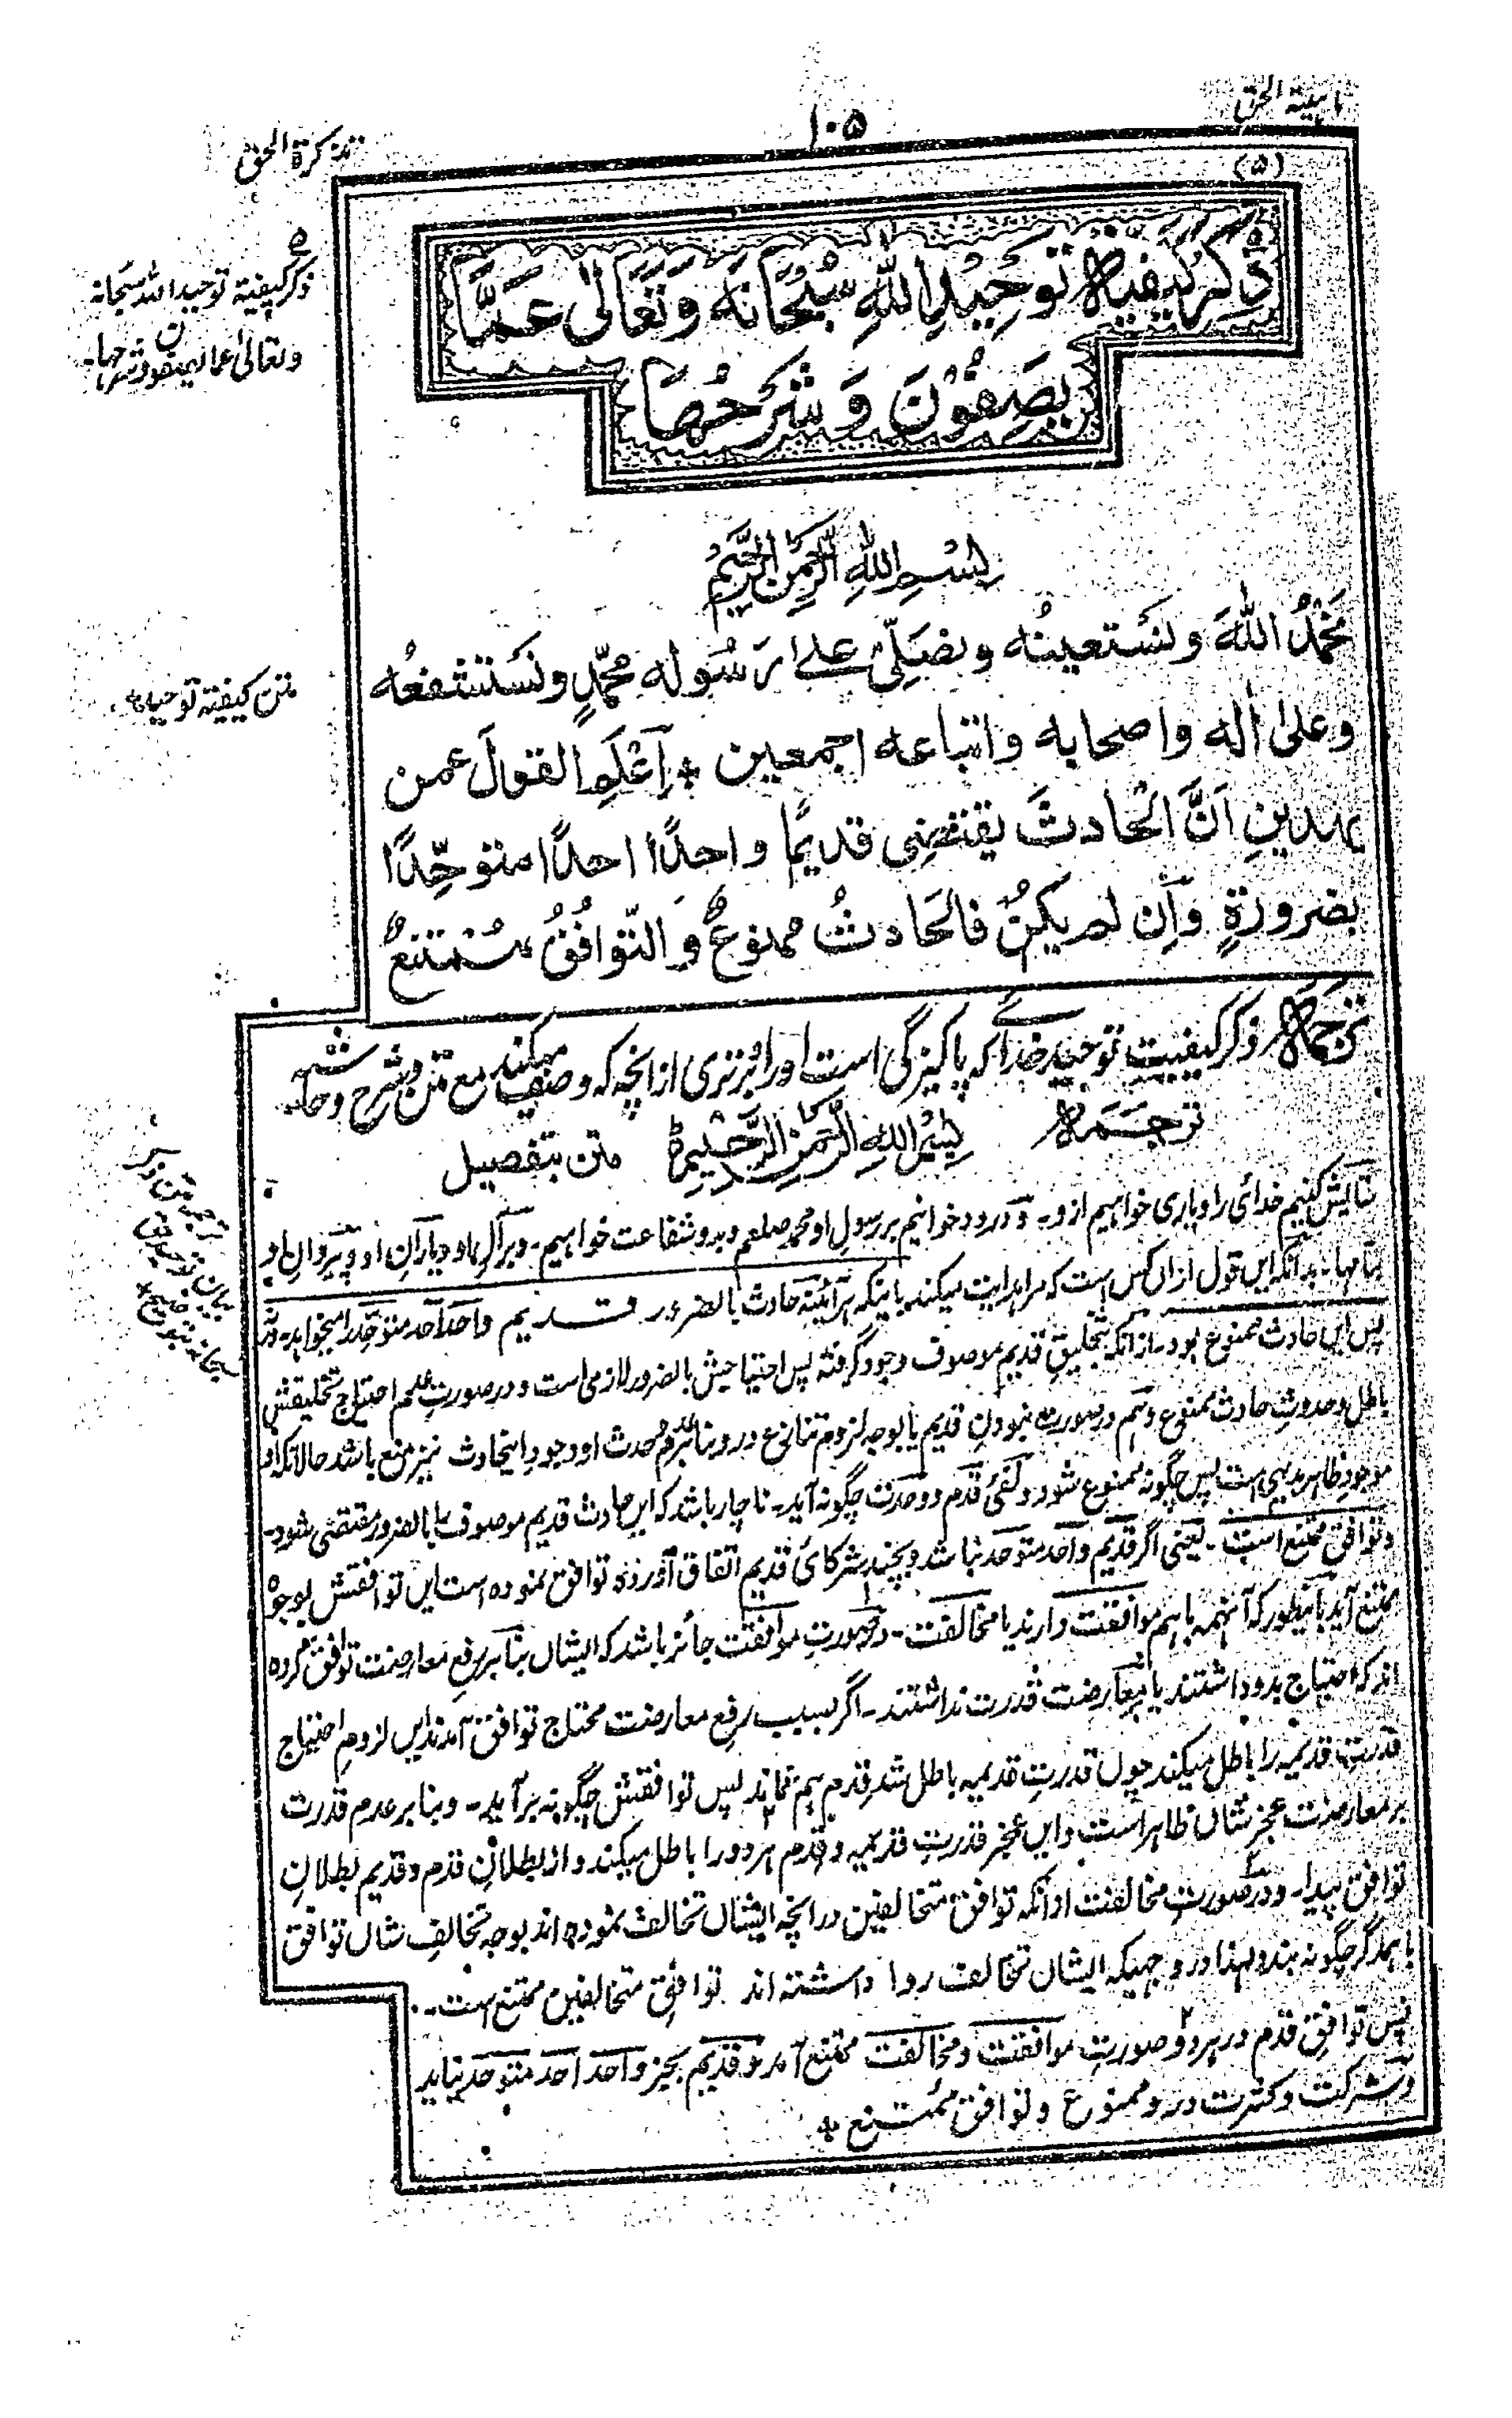 تذكرة الحق
۱۰۵
(۵)
ذكر كيفية توحيد الله سبحانه وتعالى عما
يصفون وشرحها
۵
ذکر کیفیة توحید الله سبحانه
وتعالیٰ عما یصفون وشرحها۔
بِسْمِ اللهِ الرَّحْمٰنِ الرَّحِيْمِ
نحمدُ اللهَ ونستعينُه ونصلّي على رسوله محمّدٍ ونستشفعُه
متن کیفیة توحید
وعلىٰ اٰله واصحابه واتباعه اجمعين * اَعْلَمِ القولَ عمن
يهدينِ اَنَّ الحادثَ يقتضِى قديمًا واحدًا احدًا متوحِّدًا
بضرورةٍ وَاِن لم يكنْ فالحَادثُ ممنوعٌ وَالتّوافُقُ مُمْتنعٌ
ترجمة ذکر کیفیت توحید خدائے کہ پاکیزگی است اورا و برتری از انچہ کہ وصف میکنند مع متن و شرح و حاشیہ
ترجمة بسم الله الرحمن الرحيم متن بتفصیل
ستایش کنیم خدائی را ویاری خواہیم ازو۔ و درود خوانیم بر رسولِ او محمد صلعم و بدو شفاعت خواہیم۔ وبر آلِ او و یارانِ او و پیروانِ او
بدانکہ ایں قول ازاں کس است کہ مرا ہدایت میکند باینکہ ہر آئینہ حادث بالضرور قدیم واحد احد متوحد را میخواہد۔
پس ایں حادث ممنوع بود۔ ازانکہ بتخلیقِ قدیم موصوف وجود گرفتہ پس احتیاجیش بالضرور لازمی است و در صورتِ عدم احتیاج تخلیقش
باطل و حدوثِ حادث ممنوع و ہم در صورت نبودنِ قدیم یا بوجہ لزوم تنازع در و بنا بر عدم حدث او وجودِ ایحادث نیز منع باشد حالانکہ او
موجودِ ظاہر بدیہی است پس چگونہ ممنوع شود و نفئ قدم و وحدت چگونہ آید۔ ناچار باشد کہ ایں حادث قدیم موصوف را بالضرور مقتضی شود۔
و توافق ممتنع است۔ یعنی اگر قدیم واحد متوحد نباشد و بچند شرکائ قدیم اتفاق آوردہ توافق نمودہ است ایں توافقش بوجوہ
ممتنع آید باینطور کہ آنہمہ باہم موافقت دارند یا مخالفت۔ در صورتِ موافقت جائز باشد کہ ایشاں بنا بر رفعِ معارضت توافق کردہ
اند کہ احتیاج بدو داشتند یا بمعارضت قدرت نداشتند۔ اگر بسبب رفعِ معارضت محتاج توافق آمدند ایں لزومِ احتیاج
قدرتِ قدیمہ را باطل میکند چوں قدرتِ قدیمہ باطل شد قدم ہم نماند پس توافقش چگونہ برآید۔ و بنا بر عدم قدرت
بر معارضت عجزِ شاں ظاہر است و ایں عجز قدرتِ قدیمہ و قدم ہر دو را باطل میکند و از بطلانِ قدم و قدیم بطلانِ
توافق پیدا۔ و در صورتِ مخالفت ازانکہ توافق متخالفین در انچہ ایشاں تخالف نمودہ اند بوجہ تخالفِ شاں توافق
باہمدگر چگونہ بندد لہذا در وجہیکہ ایشاں تخالف روا داشتہ اند توافقِ متخالفین ممتنع است۔
پس توافقِ قدم در ہر دو صورتِ موافقت و مخالفت ممتنع آمد و قدیم بجز واحد احد متوحد نباید
و شرکت و کثرت درو ممنوع و توافق ممتنع *
ترجمہ متن ذکر
بیان توحید
سبحانہ